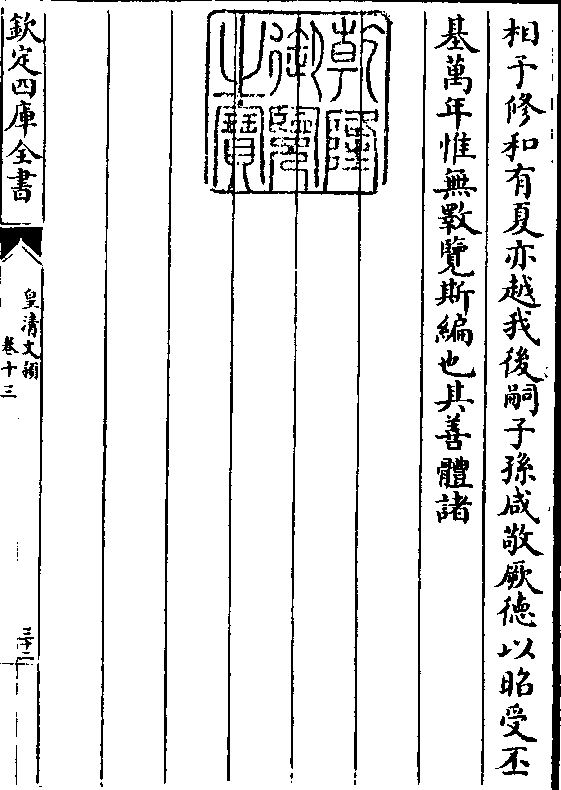 相予修和有夏亦越我後嗣子孫咸敬厥德以昭受丕
基萬年惟無斁覽斯編也其善體諸
乾隆
御覽
之寶
欽定四庫全書
皇清文穎
卷十三
三十二